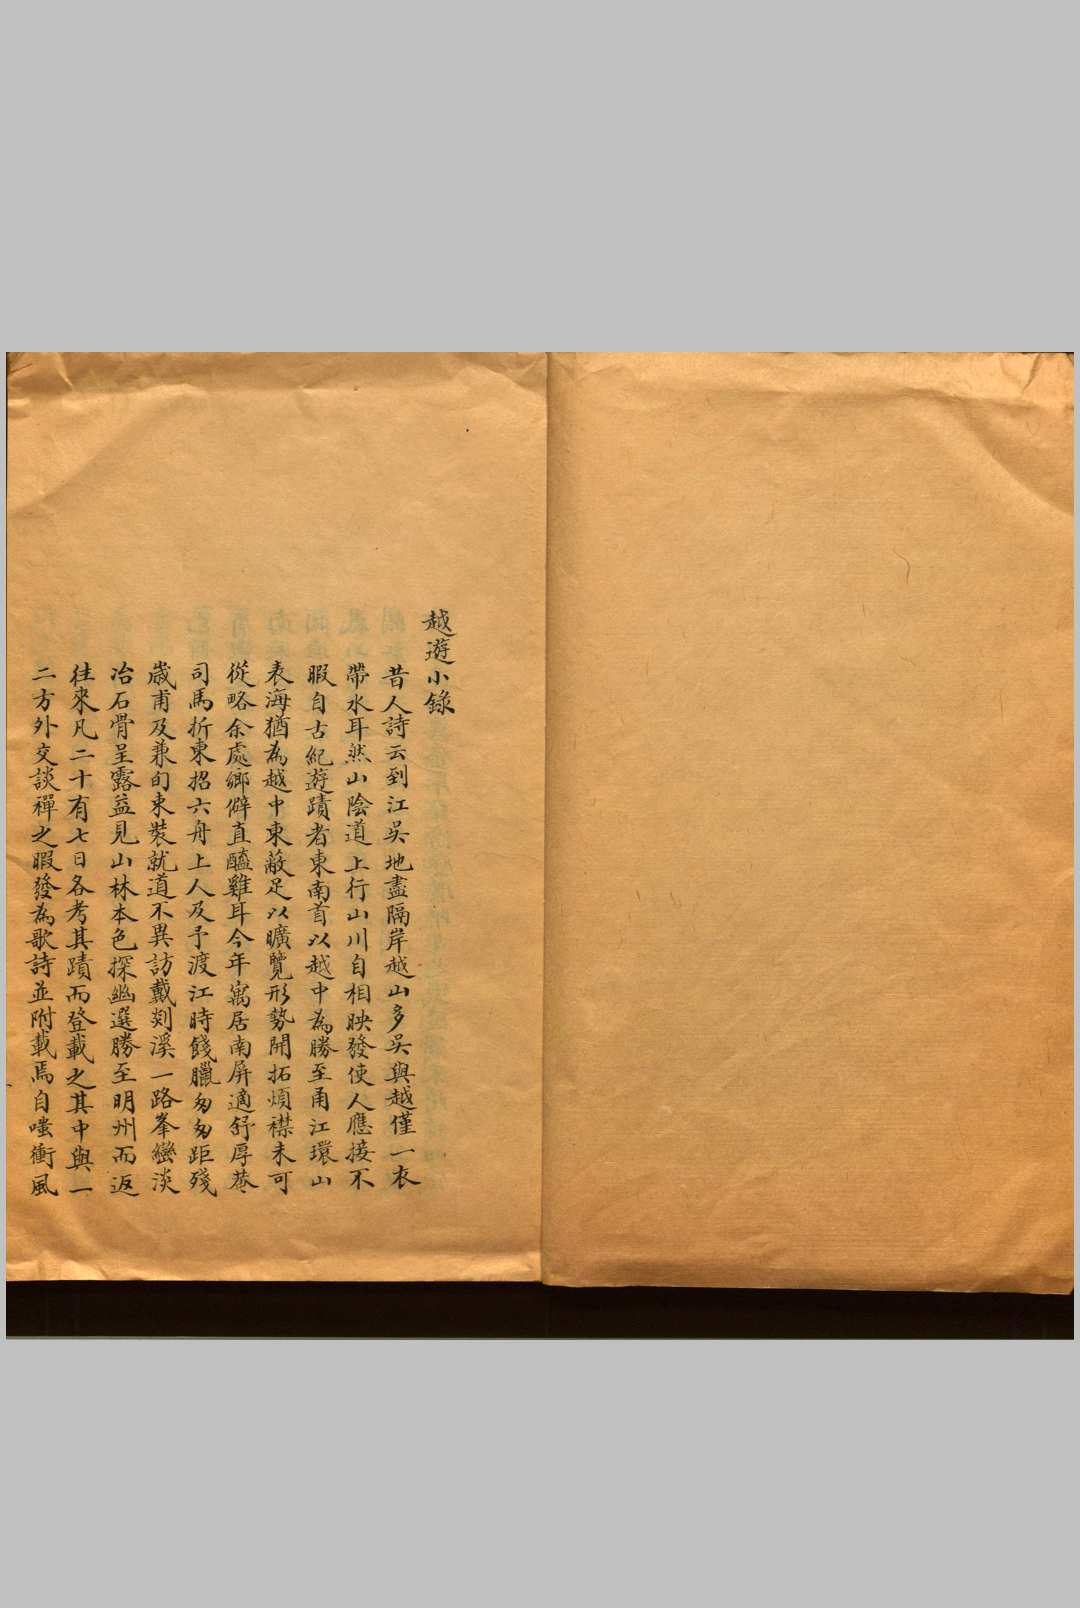 越遊小錄
昔人詩云到江吳地盡隔岸越山多吳與越僅一衣
帶水耳然山陰道上行山川自相映發使人應接不
暇自古紀遊蹟者東南首以越中為勝至甬江環山
表海猶為越中東蔽足以曠覽形勢開拓煩襟未可
從略余處鄉僻直醯雞耳今年寓居南屏適舒厚菴
司馬折柬招六舟上人及予渡江時餞臘匆匆距殘
歲甫及兼旬束裝就道不異訪戴剡溪一路峯巒淡
冶石骨呈露益見山林本色探幽選勝至明州而返
往來凡二十有七日各考其蹟而登載之其中與一
二方外交談禪之暇發為歌詩並附載焉自嗤衝風